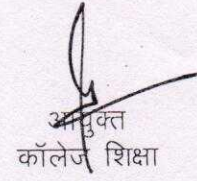 आयुक्त
कॉलेज शिक्षा